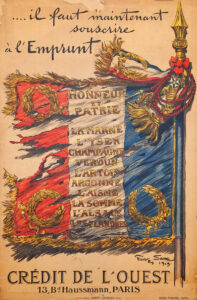 ....il faut maintenant
souscrire
à l'Emprunt
HONNEUR
ET
PATRIE
LA MARNE
L'YSER
CHAMPAGNE
VERDUN
L'ARTOIS
ARGONNE
L'AISNE
LA SOMME
L'ALSACE
1917
CRÉDIT DE L'OUEST
13, Bd Haussmann, PARIS